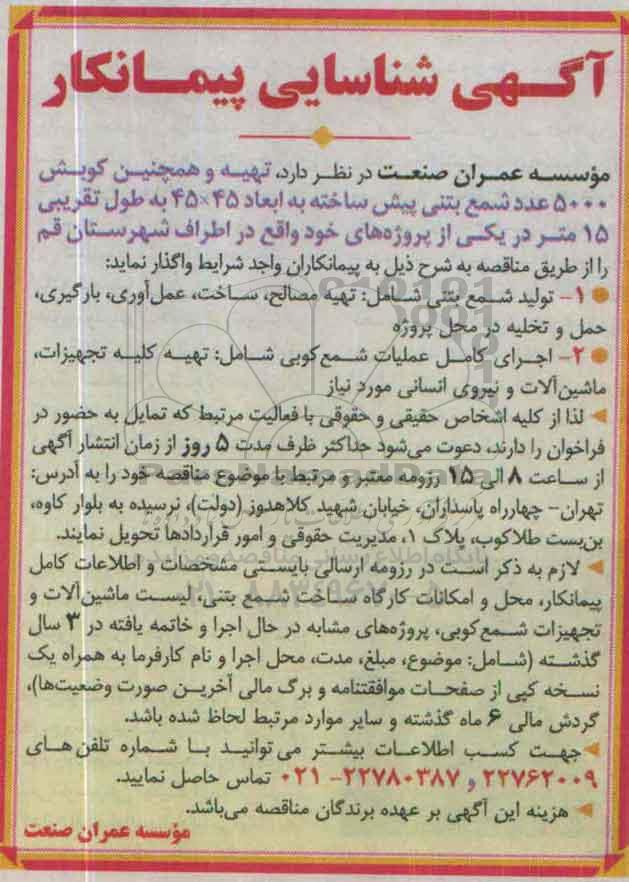 آگهی شناسایی پیمانکار
مؤسسه عمران صنعت در نظر دارد، تهیه و همچنین کوبش
۵۰۰۰ عدد شمع بتنی پیش ساخته به ابعاد ۴۵×۴۵ به طول تقریبی
۱۵ متر در یکی از پروژه‌های خود واقع در اطراف شهرستان قم
را از طریق مناقصه به شرح ذیل به پیمانکاران واجد شرایط واگذار نماید:
۱- تولید شمع بتنی شامل: تهیه مصالح، ساخت، عمل‌آوری، بارگیری،
حمل و تخلیه در محل پروژه
۲- اجرای کامل عملیات شمع‌کوبی شامل: تهیه کلیه تجهیزات،
ماشین‌آلات و نیروی انسانی مورد نیاز
لذا از کلیه اشخاص حقیقی و حقوقی با فعالیت مرتبط که تمایل به حضور در
فراخوان را دارند، دعوت می‌شود حداکثر ظرف مدت ۵ روز از زمان انتشار آگهی
از ساعت ۸ الی ۱۵ رزومه معتبر و مرتبط با موضوع مناقصه خود را به آدرس:
تهران- چهارراه پاسداران، خیابان شهید کلاهدوز (دولت)، نرسیده به بلوار کاوه،
بن‌بست طلاکوب، پلاک ۱، مدیریت حقوقی و امور قراردادها تحویل نمایند.
لازم به ذکر است در رزومه ارسالی بایستی مشخصات و اطلاعات کامل
پیمانکار، محل و امکانات کارگاه ساخت شمع بتنی، لیست ماشین‌آلات و
تجهیزات شمع‌کوبی، پروژه‌های مشابه در حال اجرا و خاتمه یافته در ۳ سال
گذشته (شامل: موضوع، مبلغ، مدت، محل اجرا و نام کارفرما به همراه یک
نسخه کپی از صفحات موافقتنامه و برگ مالی آخرین صورت وضعیت‌ها)،
گردش مالی ۶ ماه گذشته و سایر موارد مرتبط لحاظ شده باشد.
جهت کسب اطلاعات بیشتر می توانید با شماره تلفن های
۲۲۷۶۲۰۰۹ و ۲۲۷۸۰۳۸۷- ۰۲۱ تماس حاصل نمایید.
هزینه این آگهی بر عهده برندگان مناقصه می‌باشد.
مؤسسه عمران صنعت